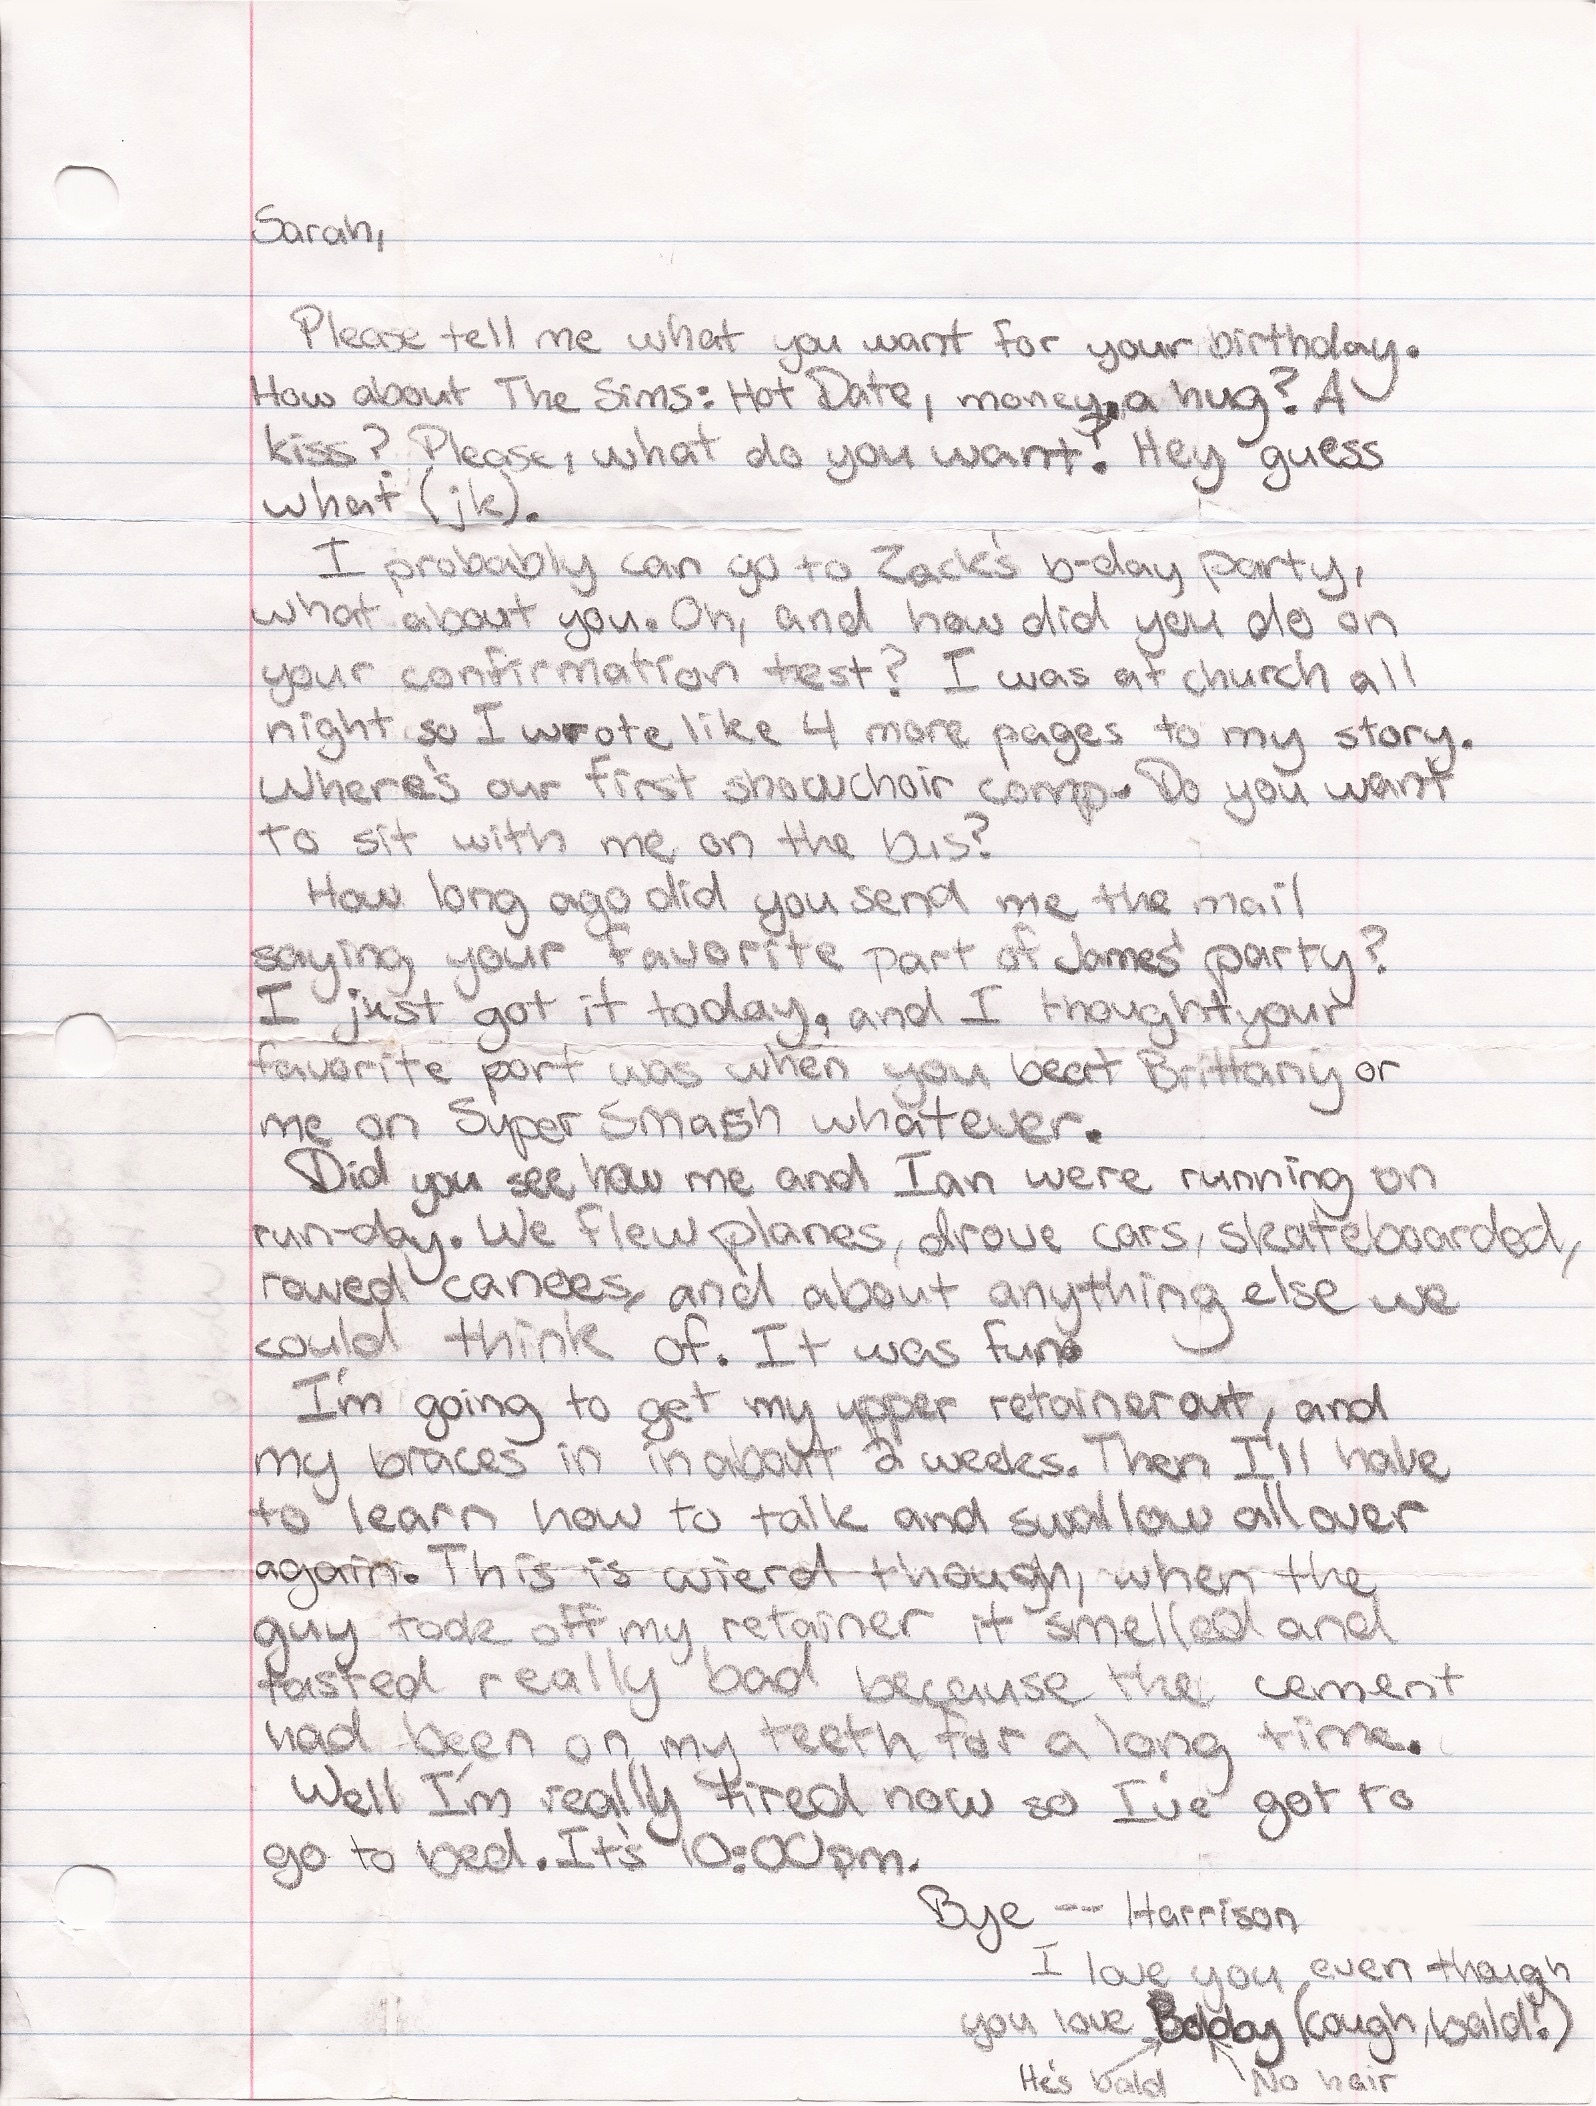 Sarah,
Please tell me what you want for your birthday.
How about The Sims: Hot Date, money, a hug? A
kiss? Please, what do you want? Hey guess
what (jk).
I probably can go to Zack's b-day party,
what about you. Oh, and how did you do on
your confirmation test? I was at church all
night so I wrote like 4 more pages to my story.
Where's our first showchoir comp. Do you want
to sit with me on the bus?
How long ago did you send me the mail
saying your favorite part of James' party?
I just got it today, and I thought your
favorite part was when you beat Brittany or
me on Super Smash whatever.
Did you see how me and Ian were running on
run-day. We flew planes, drove cars, skateboarded,
rowed canoes, and about anything else we
could think of. It was fun.
I'm going to get my upper retainer out, and
my braces in in about 2 weeks. Then I'll have
to learn how to talk and swallow all over
again. This is wierd though, when the
guy took off my retainer it smelled and
tasted really bad because the cement
had been on my teeth for a long time.
Well I'm really tired now so I've got to
go to bed. It's 10:00pm.
Bye -- Harrison
I love you even though
you love Bobby (cough, bald!)
He's bald No hair